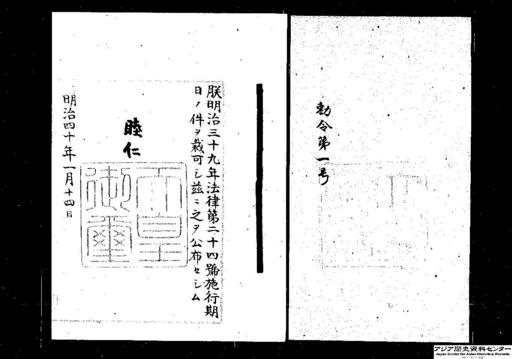 勅令第一号
朕明治三十九年法律第二十四號施行期
日ノ件ヲ裁可シ茲ニ之ヲ公布セシム
睦仁
天皇
御璽
明治四十年一月十四日
アジア歴史資料センター
Japan Center for Asian Historical Records